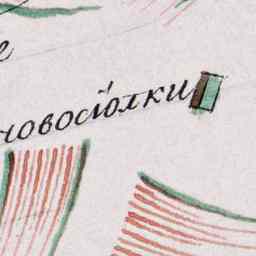 е
новосіолки